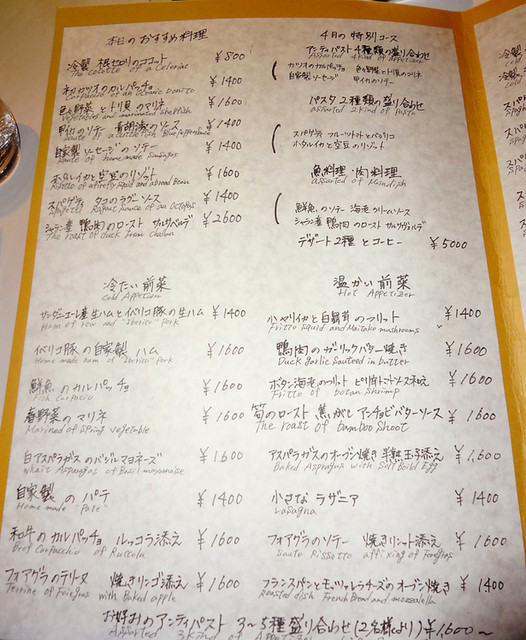 本日のおすすめ料理
冷製 根セロリのココット ￥800
The cocotte of a Celeriac
初ガツオのカルパッチョ ￥1400
Carpaccio of an Oceanic bonito
色々野菜と貝のマリネ ￥1600
vegetables and marinated shellfish
甲イカのソテー ソース ￥1400
Saute of a cuttle fish
自家製 ソーセージのソテー ￥1400
Saute of home made Sausages
ホタルイカと空豆のリゾット ￥1600
Risotto of a firefly squid and a broad Bean
スパゲティ タコのラグーソース ￥1400
Spaghetti Ragout sauce of an Octopus
シャラン産 鴨肉のロースト サルサベルデ ￥2600
The roast of duck from chalan
4月の特別コース
アンティパスト4種類の盛り合わせ
assorted 4 kind of Appetizer
カツオのカルパッチョ 色々野菜と貝のマリネ
自家製ソーセージ 甲イカのソテー
パスタ2種類の盛り合わせ
assorted 2 kind of Pasta
スパゲティ フルーツトマトとバジリコ
ホタルイカと空豆のリゾット
魚料理・肉料理
鮮魚のソテー 海老クリームソース
シャラン産 鴨肉のロースト サルサヴェルデ
デザート2種とコーヒー ￥5000
冷たい前菜
Cold Appetizer
生ハムとイベリコ豚の生ハム ￥1400
Ham of raw and "Iberico" pork
イベリコ豚の自家製 ハム ￥1600
Home made ham of "Iberico" pork
鮮魚のカルパッチョ ￥1600
Fish Carpacio
春野菜のマリネ ￥1600
Marined of Spring vegetable
白アスパラガスのバジルマヨネーズ ￥1600
whait Asparagas of Basil mayonnaise
自家製のパテ ￥1400
Home made "Pate"
和牛のカルパッチョ ルッコラ添え ￥1600
Beef Carpacchio of Ruccola
フォアグラのテリーヌ 焼きリンゴ添え ￥1600
Terrine of Foiegras with Baked apple
温かい前菜
Hot Appetizer
小ヤリイカと白舞茸のフリット ￥1400
Fritto squid and Maitake mushrooms
鴨肉のガーリックバター焼き ￥1600
Duck garlic sauteed in butter
ボタン海老のフリット ピリ辛トマトソース和え ￥1600
Fritto of botan Shrimp
筍のロースト 焦がしアンチョビバターソース ￥1600
The roast of bamboo Shoot
アスパラガスのオーブン焼き 半熟玉子添え ￥1,600
Baked Aspragus with Saft Boild Egg
小さなラザニア ￥1400
Lasagna
フォアグラのソテー 焼きリゾット添え ￥1600
Saute Rissotto affixing of Foiegras
フランスパンとモッツァレラチーズのオーブン焼き ￥1400
Roasted dish French Bread and mozzarella
お好みのアンティパスト 3〜5種盛り合わせ(2名様より) ￥1,600〜
Assorted